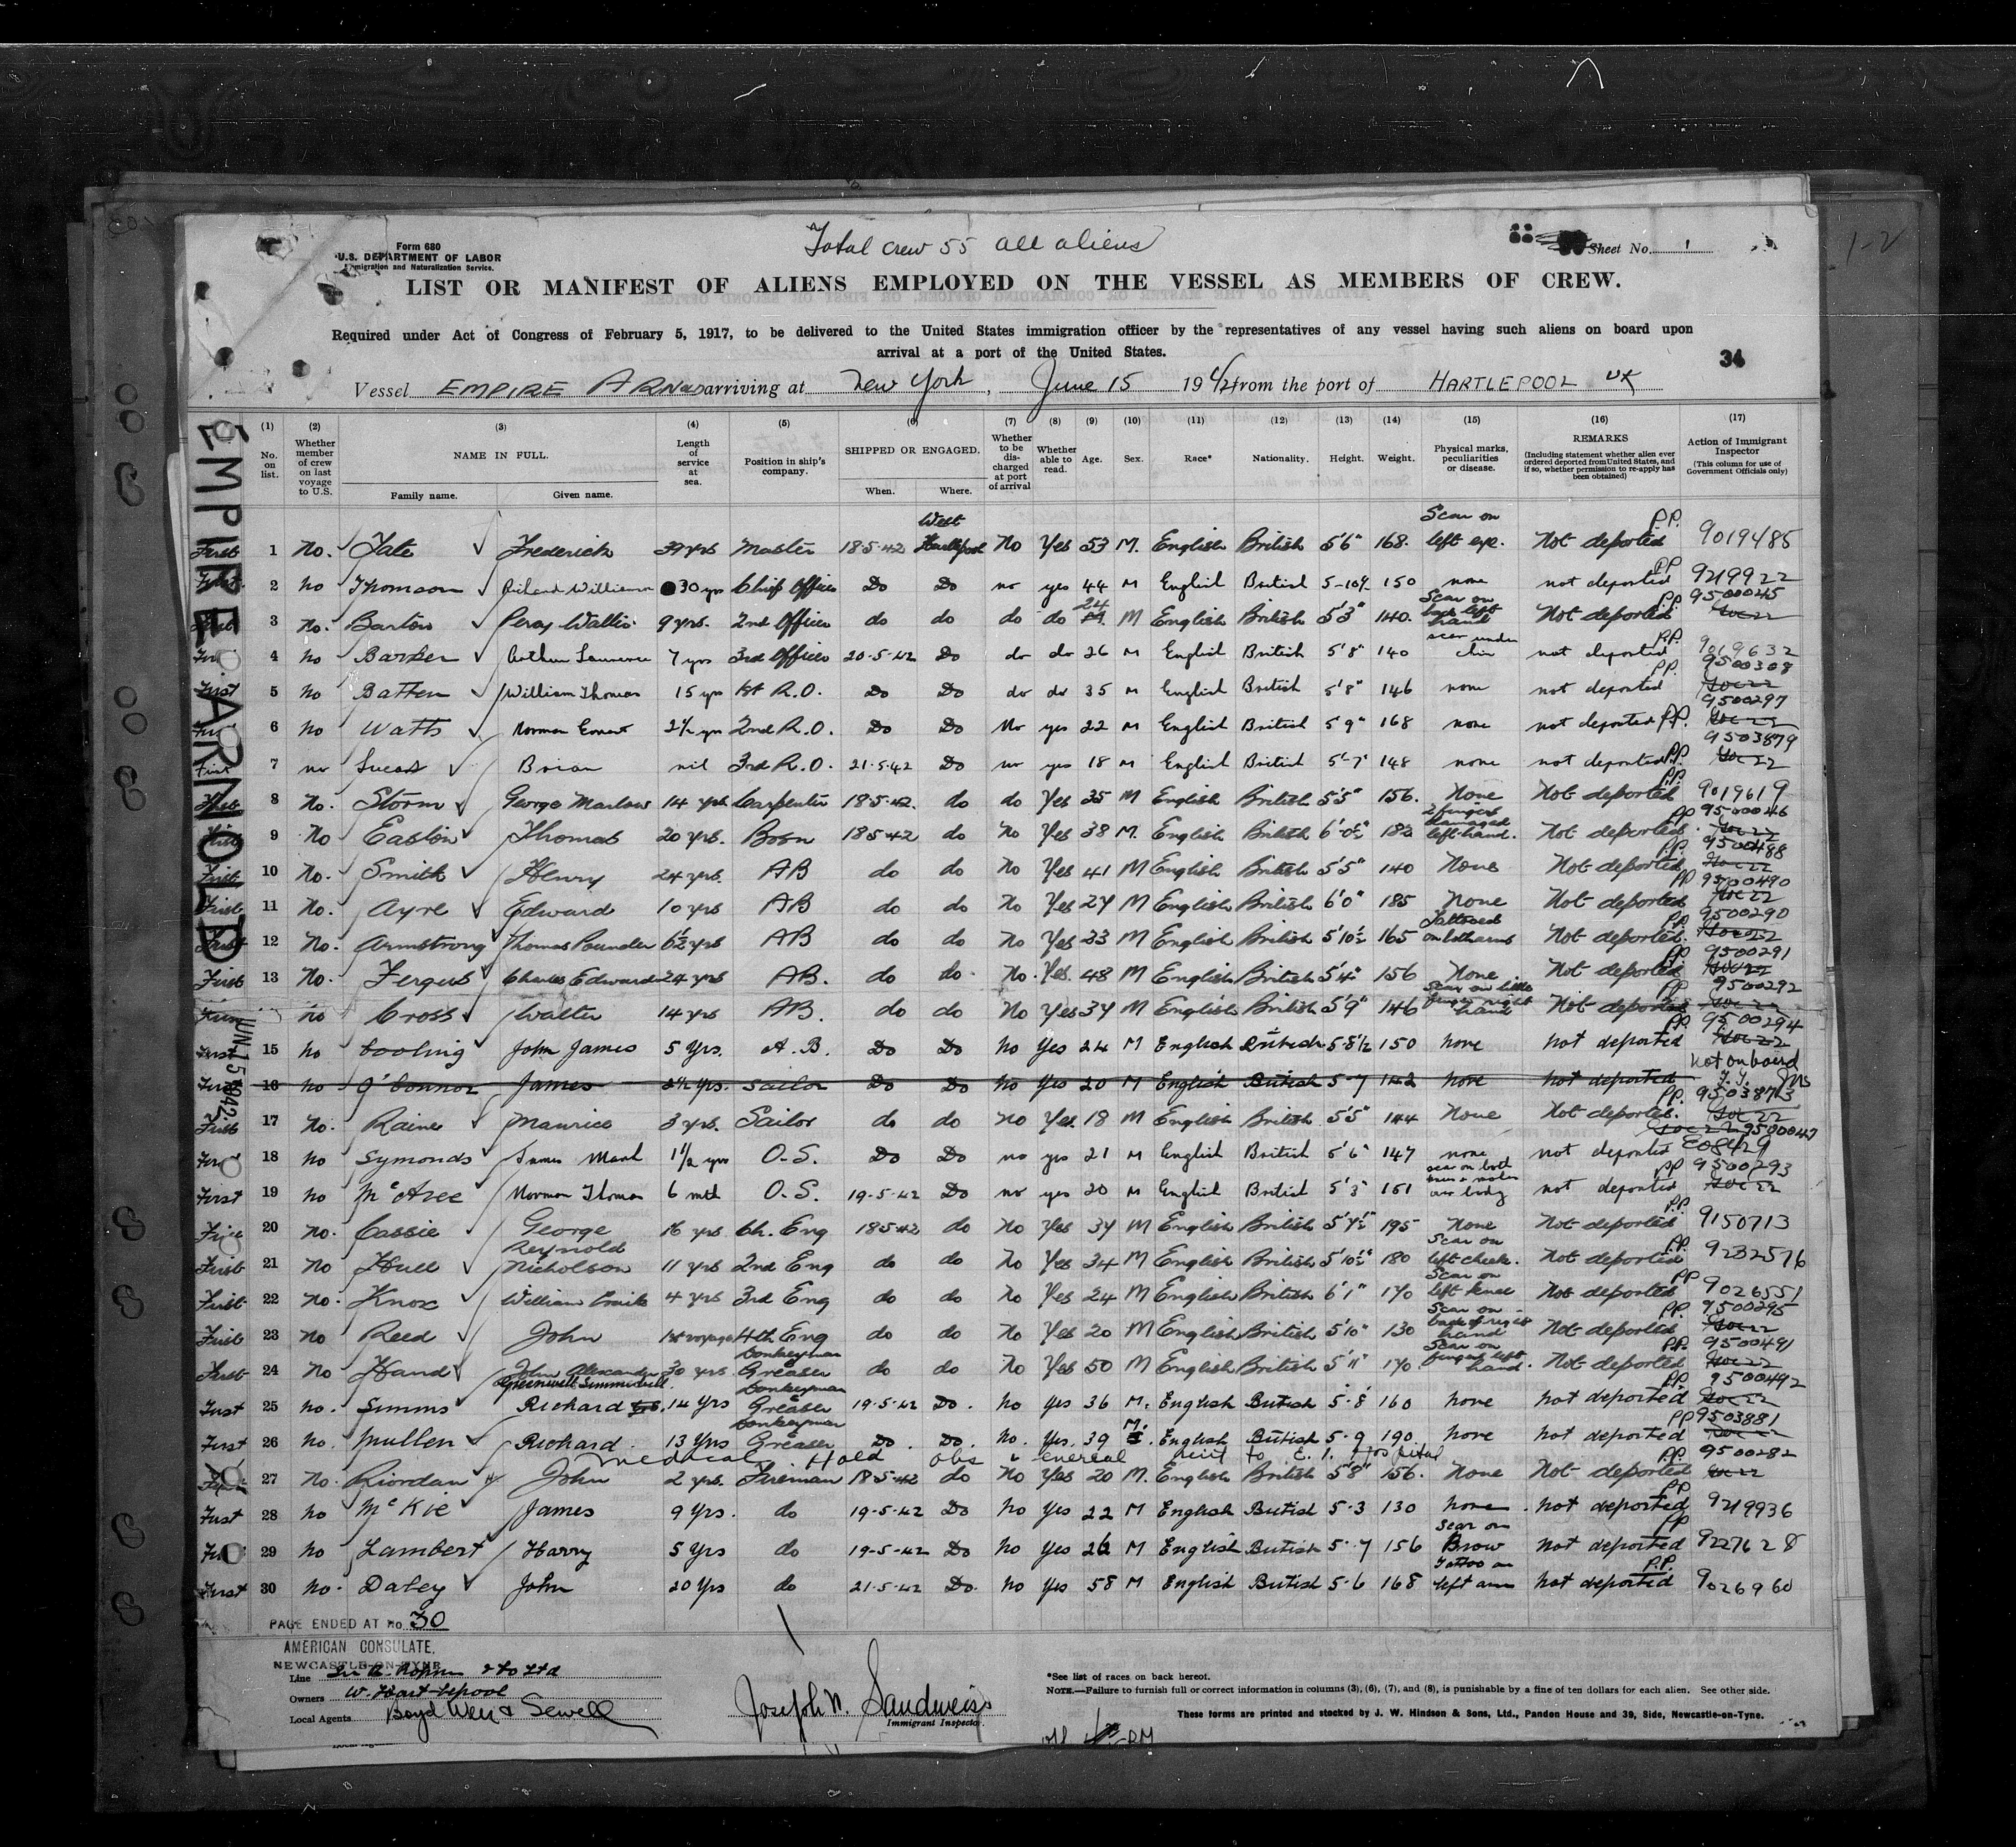 Total crew 55 all aliens
Form 680
U.S. DEPARTMENT OF LABOR
Immigration and Naturalization Service.
Sheet No. 1
1-2
LIST OR MANIFEST OF ALIENS EMPLOYED ON THE VESSEL AS MEMBERS OF CREW.
Required under Act of Congress of February 5, 1917, to be delivered to the United States immigration officer by the representatives of any vessel having such aliens on board upon
arrival at a port of the United States.
34
Vessel EMPIRE ARNOLD arriving at New York, June 15 1942 from the port of HARTLEPOOL UK
EMPIRE ARNOLD
JUN 15 1942
(1) (2) (3) (4) (5) (6) (7) (8) (9) (10) (11) (12) (13) (14) (15) (16) (17)
No. on list. Whether member of crew on last voyage to U.S. NAME IN FULL. Family name. Given name. Length of service at sea. Position in ship's company. SHIPPED OR ENGAGED. When. Where. Whether to be discharged at port of arrival Whether able to read. Age. Sex. Race* Nationality. Height. Weight. Physical marks, peculiarities or disease. REMARKS (Including statement whether alien ever ordered deported from United States, and if so, whether permission to re-apply has been obtained) Action of Immigrant Inspector (This column for use of Government Officials only)
First 1 No. Tate Frederick 39 yrs Master 18.5.42 West Hartlepool No Yes 53 M. English British 5'6" 168. Scar on left eye. Not deported P.P. 9019485
First 2 no Thomson Richard William 30 yrs Chief Officer Do Do no yes 44 M English British 5-10½ 150 none not deported PP 9219922
First 3 no. Barton Percy Wallis 9 yrs. 2nd Officer do do do do 24 M English British 5'3" 140. Scar on back left hand Not deported PP 9500045
4 no Barker Arthur Laurence 7 yrs 3rd Officer 20.5.42 Do do do 26 M English British 5'8" 140 scar under chin not deported P.P. 9019632
First 5 no Batten William Thomas 15 yrs 1st R.O. Do Do do do 35 M English British 5'8" 146 none not deported PP. 9500308
6 no Watts Norman Ernest 2½ yrs 2nd R.O. Do Do No yes 22 M English British 5'9" 168 none not deported P.P. 9500297
First 7 no Lucas Brian nil 3rd R.O. 21.5.42 Do no yes 18 M English British 5'-7" 148 none not deported P.P. 9503879
First 8 No. Storm George Marlow 14 yrs Carpenter 18.5.42. do do Yes 35 M English British 5'5" 156. None Not deported P.P. 9019619
First 9 No Easton Thomas 20 yrs. Bosn 18.5.42 do No Yes 38 M. English British 6'-0½" 182 2 fingers damaged left hand. Not deported. PP 9500046
First 10 No. Smith Henry 24 yrs. AB do do No Yes 41 M English British 5'5" 140 None Not deported P.P. 9500488
First 11 No. Ayre Edward 10 yrs AB do do No Yes 27 M English British 6'0" 185 None Not deported PP 9500490
First 12 No. Armstrong Thomas Pounder 6½ yrs AB do do No Yes 33 M English British 5'10½ 165 Tattooed on both arms Not deported. PP. 9500290
First 13 No. Fergus Charles Edward 24 yrs AB. do do. No. Yes. 48 M English British 5'4" 156 None Not deported PP 9500291
no Cross Walter 14 yrs AB. do do No Yes 37 M English British 5'9" 146 Scar on little finger right hand Not deported PP 9500292
First 15 no Cooling John James 5 Yrs. A.B. Do Do No Yes 24 M English British 5-8½ 150 none not deported PP. 9500294
First 16 no O'Connor James 2½ yrs. Sailor Do Do No Yes 20 M English British 5-7 142 none not deported Not on board
First 17 No. Raine Maurice 3 yrs. Sailor do do No Yes. 18 M English British 5'5" 144 None Not deported. P.P. 9503873
First 18 no Symonds James Mark 1½ yrs O.S. Do Do no yes 21 M English British 5'6" 147 none not deported 9500047 E08429
First 19 no McAvee Norman Thomas 6 mth O.S. 19-5-42 Do no yes 20 M English British 5'3" 151 not deported PP 9500293
20 no. Cassie George 16 yrs Ch. Eng 18.5.42 do No Yes 37 M English British 5'7½" 195 None Not deported P.P. 9150713
First 21 No Hull Reynold Nicholson 11 yrs 2nd Eng do do No Yes 34 M English British 5'10½" 180 Scar on left cheek. Not deported P.P. 9232576
First 22 No. Knox William Emile 4 yrs 3rd Eng do do No Yes 24 M English British 6'1" 170 Scar on left knee Not deported PP 9026551
First 23 No Reed John 1st voyage 4th Eng do do No Yes 20 M English British 5'10" 130 Scar on back of right hand Not deported PP. 9500295
First 24 No Hand John Alexander Greenwell Summerbell 30 yrs Donkeyman Greaser do do No Yes 50 M English British 5'11" 170. Scar on fingers left hand. Not deported P.P. 9500491
First 25 no. Simms Richard 14 Yrs Donkeyman Greaser 19.5.42 Do. No yes 36 M. English British 5-8 160 none not deported P.P. 9500492
First 26 No. Mullen Richard. 13 Yrs Donkeyman Greaser Do. Do. No. Yes. 39 M. English British 5-9 190 none not deported PP 9503881
Medical Hold obs venereal sent to E.I. Hospital
27 No. Riordan John 2 yrs. Fireman 18.5.42 do No Yes 20 M. English British 5'8" 156. None Not deported P.P. 9500282
First 28 no McKie James 9 Yrs. do 19-5-42 Do No Yes 22 M English British 5-3 130 none not deported PP 9219936
29 no Lambert Harry 5 Yrs do 19-5-42 Do No Yes 26 M English British 5-7 156 Scar on Brow not deported PP 9227628
First 30 no. Daley John 20 Yrs do 21.5.42 Do. No Yes 58 M English British 5-6 168 Tattoo on left arm not deported P.P. 9026960
PAGE ENDED AT NO. 30
AMERICAN CONSULATE,
NEWCASTLE-ON-TYNE
Line
Owners W. Hartlepool
Local Agents Boyd Weir & Sewell
Joseph N. Sandweiss
Immigrant Inspector.
*See list of races on back hereof.
NOTE.—Failure to furnish full or correct information in columns (3), (6), (7), and (8), is punishable by a fine of ten dollars for each alien. See other side.
These forms are printed and stocked by J. W. Hindson & Sons, Ltd., Pandon House and 39, Side, Newcastle-on-Tyne.